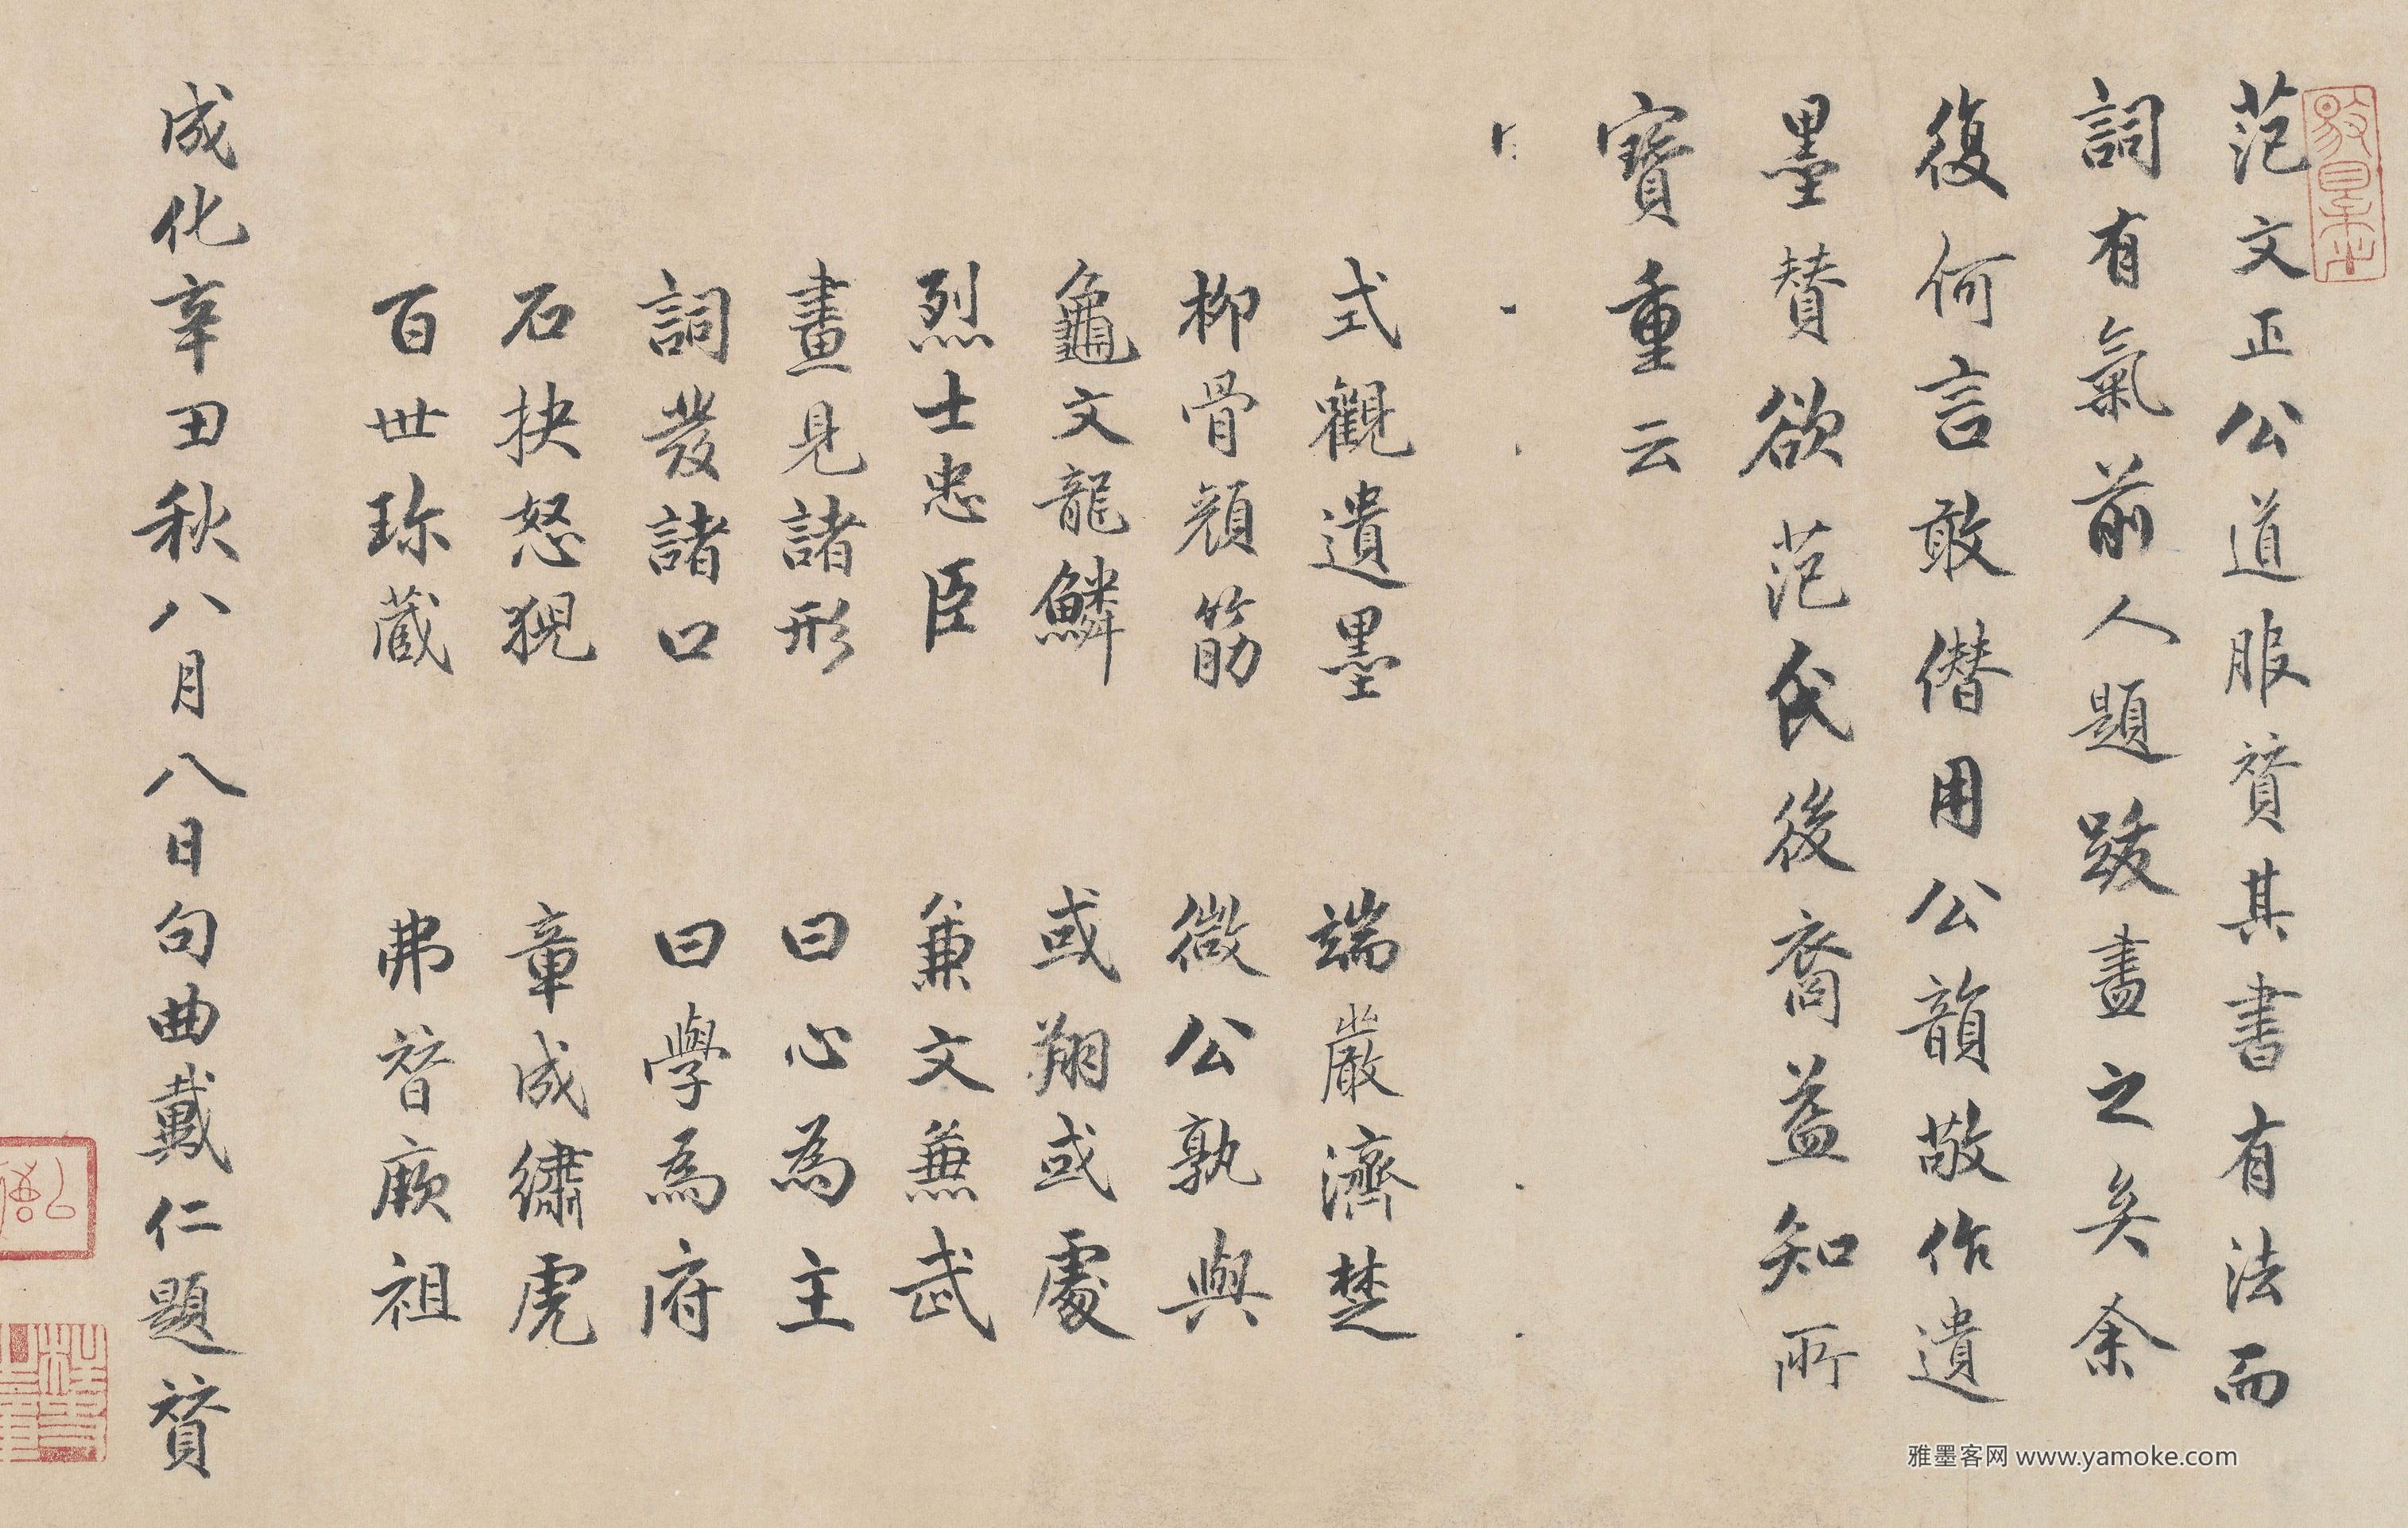 范文正公道服賛其書有法而
詞有氣前人題跋盡之矣余
復何言敢僣用公韻敬作遺
墨賛欲范氏後裔益知所
寶重云
式觀遺墨　端嚴濟楚
柳骨顔筋　微公孰與
龜文龍鱗　或翔或處
烈士忠臣　兼文兼武
畫見諸形　曰心為主
詞發諸口　曰學為府
石抉怒猊　章成繡虎
百世珎蔵　弗替厥祖
成化辛丑秋八月八日句曲戴仁題賛
雅墨客网 www.yamoke.com